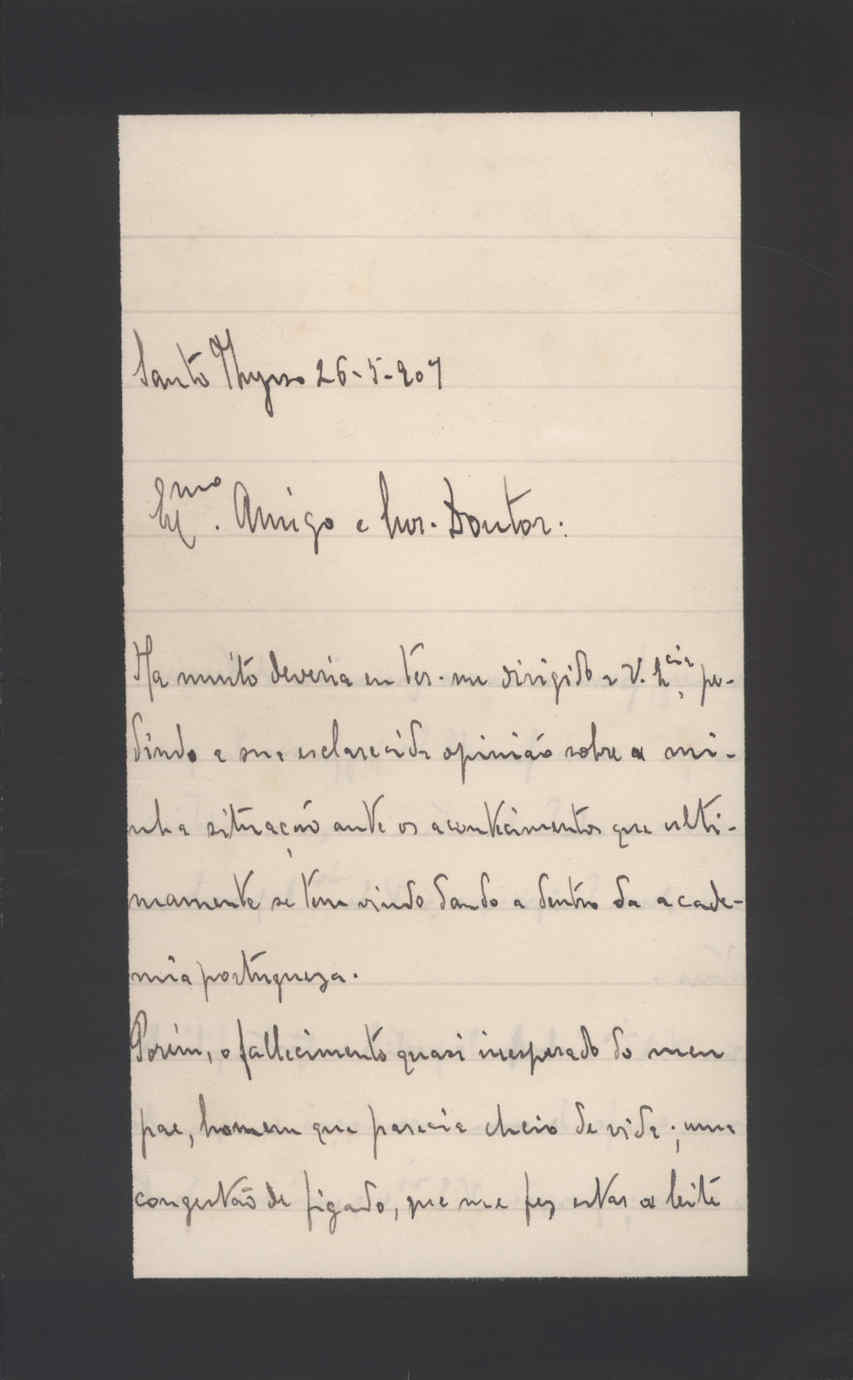 Santo Thyrso 26-5-907
Ex.mo Amigo e Snr. Doutor:
Ha muito deveria eu ter-me dirigido a V. Ex.cia, pe-
dindo a sua esclarecida opinião sobre a mi-
nha situação ante os acontecimentos que ulti-
mamente se tem vindo dando a dentro da acade-
mia portugueza.
Porém, o fallecimento quasi inesperado do meu
pae, homem que parecia cheio de vida; uma
congestão de figado, que me fez estar a leite